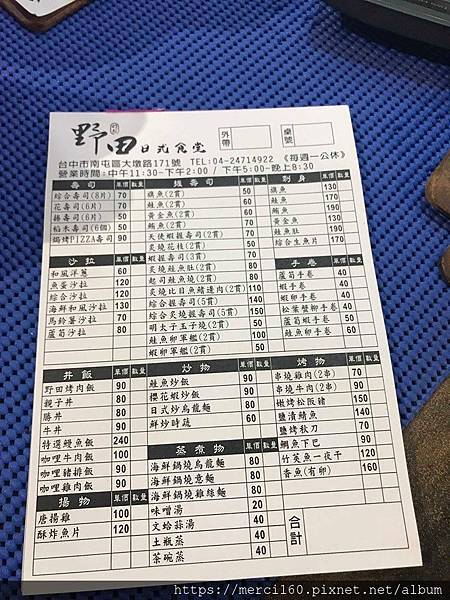 野田日式食堂
外帶
桌號
台中市南屯區大墩路171號 TEL:04-24714922 《每週一公休》
營業時間:中午11:30-下午2:00 / 下午5:00-晚上8:30
壽司 單價 數量
綜合壽司(8片) 70
花壽司(6片) 70
豆壽司(6片) 50
稻禾壽司(6個) 50
焗烤PIZZA壽司 90
沙拉 單價 數量
和風洋蔥 60
魚蛋沙拉 120
綜合沙拉 120
海鮮和風沙拉 130
馬鈴薯沙拉 70
蘆筍沙拉 80
握壽司 單價 數量
旗魚(2貫) 50
鮭魚(2貫) 50
黃金魚(2貫) 50
鮪魚(2貫) 50
天使蝦握壽司(2貫) 70
炙燒花枝(2貫) 50
蝦握壽司(3貫) 70
炙燒鮭魚肚(2貫) 80
起司鮭魚燒(2貫) 80
炙燒比目魚鰭邊肉(2貫) 110
綜合握壽司(5貫) 140
炙燒綜合握壽司(5貫) 150
明太子玉子燒(2貫) 50
鮭魚卵軍艦(2貫) 100
蝦卵軍艦(2貫) 50
刺身 單價 數量
旗魚 130
鮭魚 170
鮪魚 130
黃金魚 130
鮭魚肚 190
綜合生魚片 170
手卷 單價 數量
蘆筍手卷 40
蝦手卷 40
松葉蟹柳手卷 40
蘆筍蝦手卷 50
鮭魚卵手卷 60
丼飯 單價 數量
野田烤肉飯 90
親子丼 80
勝丼 90
牛丼 90
特選鰻魚飯 240
咖哩牛肉飯 100
咖哩豬排飯 90
咖哩雞肉飯 90
揚物 單價 數量
唐揚雞 100
酥炸魚片 120
炒物 單價 數量
鮭魚炒飯 90
櫻花蝦炒飯 90
日式炒烏龍麵 80
鮮炒時蔬 60
蒸煮物 單價 數量
海鮮鍋燒烏龍麵 80
海鮮鍋燒意麵 80
海鮮鍋燒雞絲麵 80
味噌湯 20
文蛤蒜湯 40
土瓶蒸 40
茶碗蒸 40
烤物 單價 數量
串燒雞肉(2串) 70
串燒牛肉(2串) 90
嫩烤松阪豬 150
鹽漬鯖魚 140
鹽烤秋刀 70
鯛魚下巴 90
竹筴魚一夜干 120
香魚(有卵) 160
合計
https://merci160.pixnet.net/album